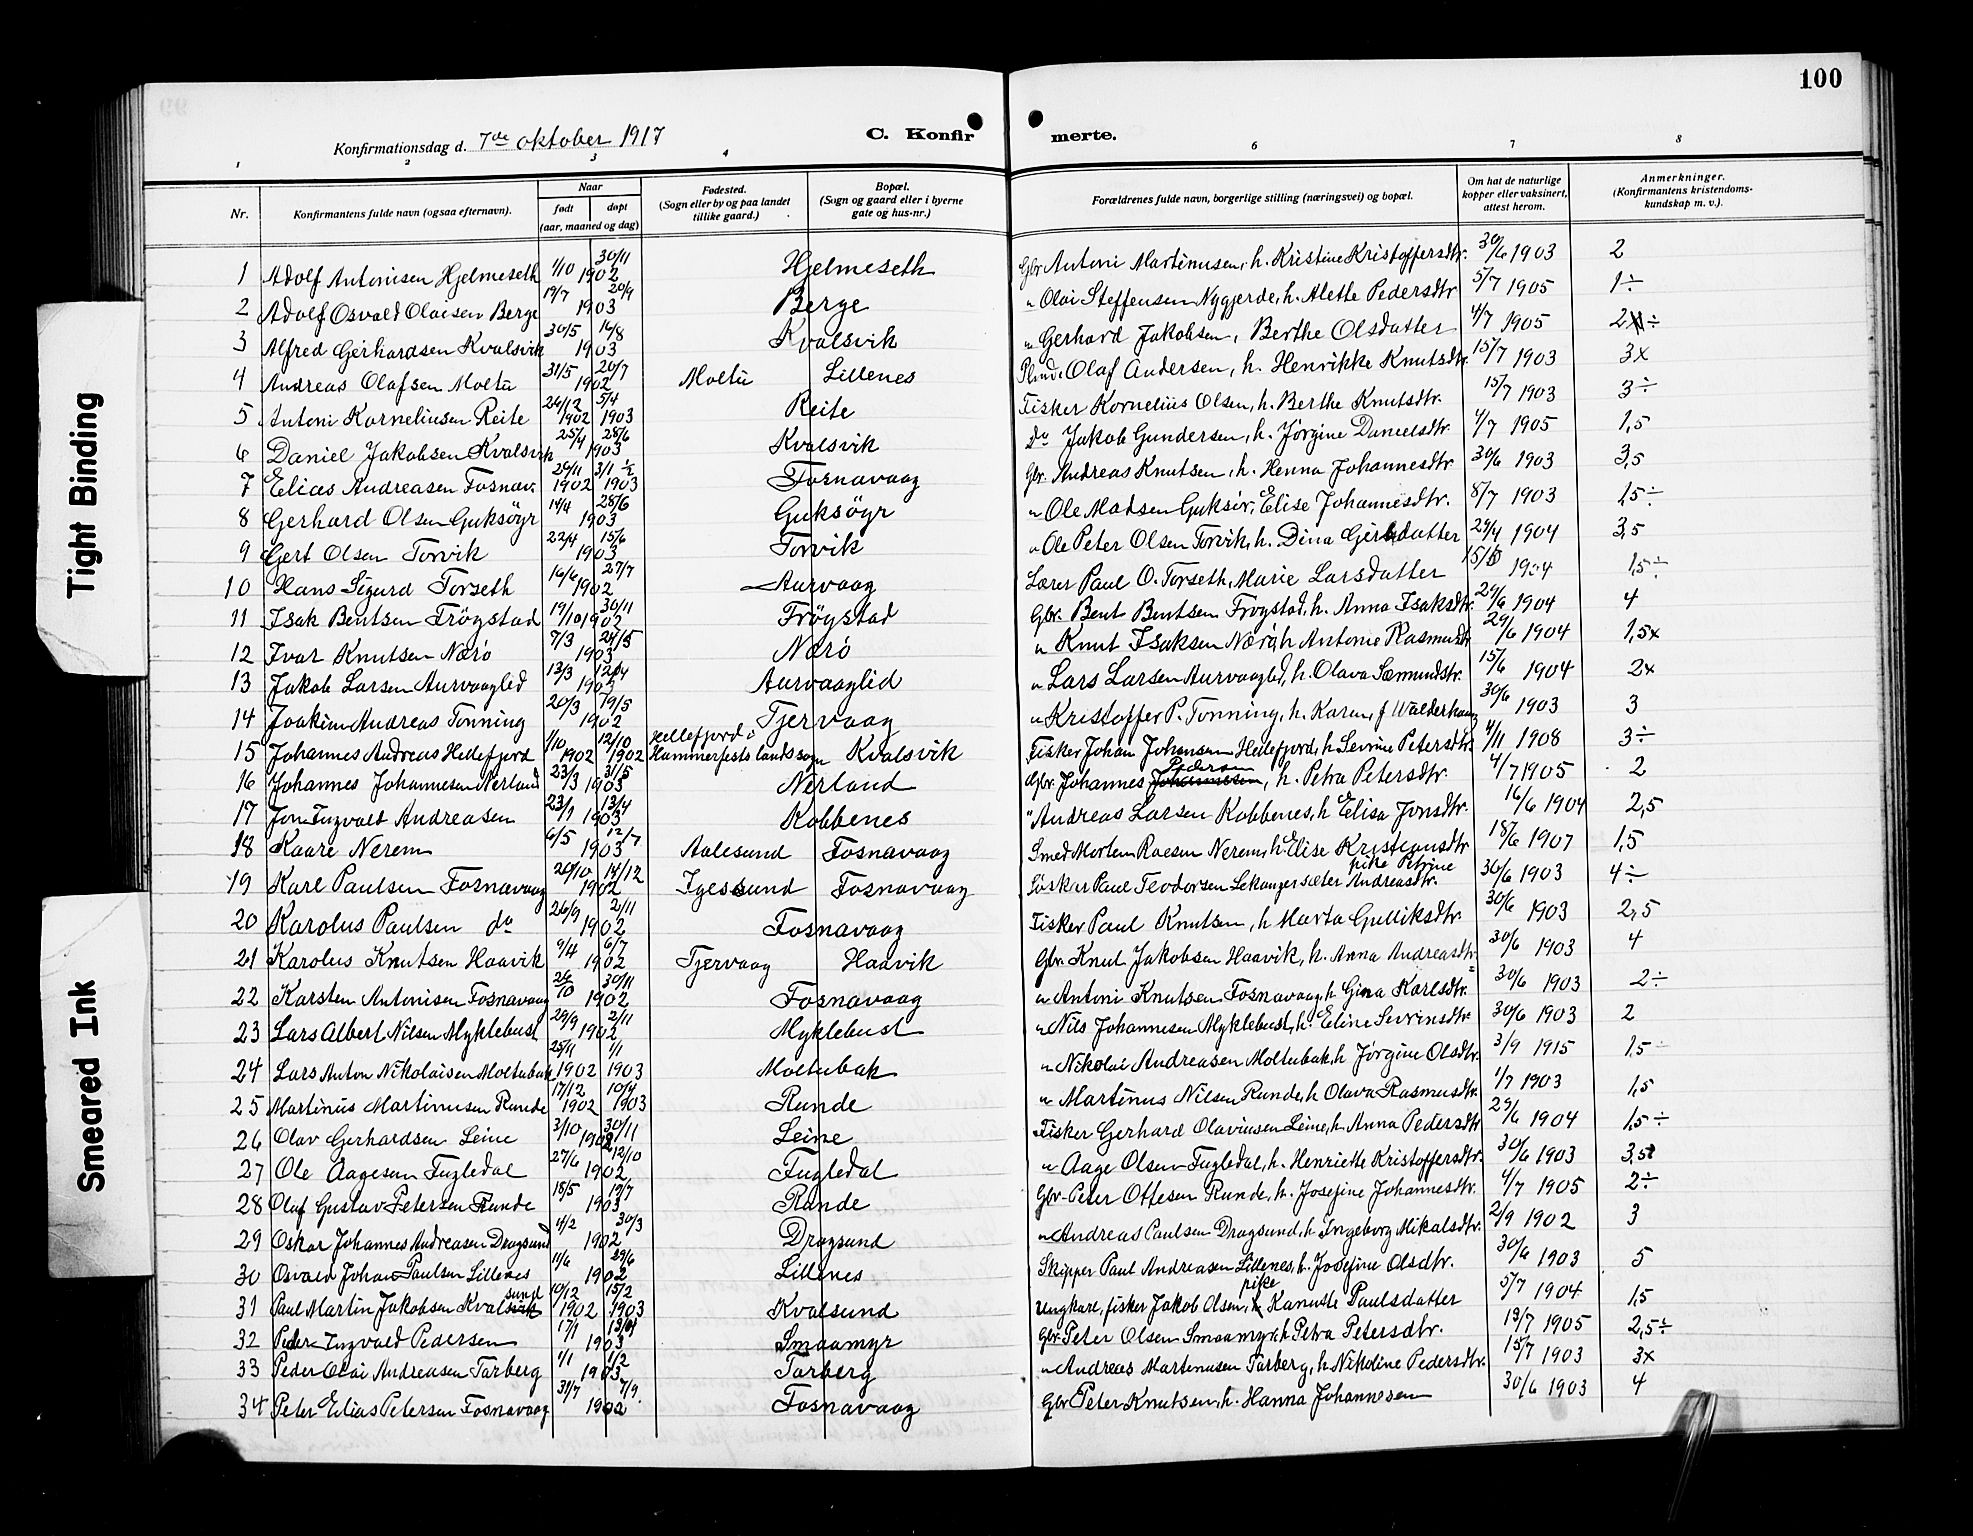 100
Konfirmationsdag d. 7de oktober 1917
C. Konfirmerte.
1 2 3 4 6 7 8
Nr. Konfirmantens fulde navn (ogsaa efternavn). Naar født døpt (aar, maaned og dag) Fødested. (Sogn eller by og paa landet tillike gaard.) Bopæl. (Sogn og gaard eller i byerne gate og hus-nr.) Forældrenes fulde navn, borgerlige stilling (næringsvei) og bopæl. Om hat de naturlige kopper eller vaksinert, attest herom. Anmerkninger. (Konfirmantens kristendoms-kundskap m. v.).
1 Adolf Antonisen Hjelmeseth 1/10 30/11 1902 Hjelmeseth Gbr Antoni Martinusen, h. Kristine Kristoffersdtr. 30/6 1903 2
2 Adolf Osvald Olaisen Berge 19/7 20/9 1903 Berge " Olai Steffensen Nygjerde, h. Alette Pedersdtr 5/7 1905 1÷
3 Alfred Gerhardsen Kvalsvik 30/5 16/8 1903 Kvalsvik " Gerhard Jakobsen, Berthe Olsdatter 4/7 1905 2÷
4 Andreas Olafsen Moltu 31/5 20/7 1902 Moltu Lillenes Olaf Andersen, h. Henrikke Knutsdtr. 15/7 1903 3x
5 Antoni Korneliusen Reite 24/12 1902 5/4 1903 Reite Fisker Kornelius Olsen, h. Berthe Knutsdtr. 15/7 1903 3÷
6 Daniel Jakobsen Kvalsvik 25/4 28/6 1903 Kvalsvik do Jakob Gundersen, h. Jørgine Danielsdtr. 4/7 1905 1,5
7 Elias Andreasen Fosnav. 29/11 1902 3/1 1903 Fosnavaag Gbr. Andreas Knutsen, h. Henna Johannesdtr. 30/6 1903 3,5
8 Gerhard Olsen Guksöyr 14/4 28/6 1903 Guksöyr " Ole Madsen Guksör, Elise Johannesdtr. 8/7 1903 1,5÷
9 Gert Olsen Torvik 22/4 15/6 1903 Torvik " Ole Peter Olsen Torvik, h. Dina 29/4 1904 3,5
10 Hans Sigurd Torseth 16/6 27/7 1902 Aurvaag Lærer Paul O. Torseth, Marie Larsdatter 1904 1,5÷
11 Isak Bentsen Fröystad 19/10 30/11 1902 Fröystad Gbr. Bent Bentsen Frøystad, h. Anna Isaksdtr. 29/6 1904 4
12 Ivar Knutsen Nærø 7/3 24/5 1903 Nærø " Knut Isaksen Nærø, h Antonie Rasmusdtr 29/6 1904 1,5x
13 Jakob Larsen Aurvaaglid 13/3 12/4 1903 Aurvaaglid " Lars Larsen Aurvaaglid, h. Olava Sæmundsdtr. 15/6 1904 2x
14 Joakim Andreas Tonning 20/3 19/5 1902 Tjervaag " Kristoffer P. Tonning, h. Karen, f Walderhaug 30/6 1903 3
15 Johannes Andreas Hellefjord 1/10 1902 12/10 1902 Hellefjord i Hammerfests landssogn Kvalsvik Fisker Johan Johansen Hellefjord, h Sevrine Petersdtr. 4/11 1908 3÷
16 Johannes Johannesen Nerland 23/3 31/5 1903 Nerland Gbr. Johannes Johannesen Pedersen, h. Petra Petersdtr. 4/7 1905 2
17 Jon Ingvald Andreasen 23/1 13/4 1903 Kobbenes " Andreas Larsen Kobbenes, h Elisa Jonsdtr. 16/6 1904 2,5
18 Kaare Nerem 6/5 12/7 1903 Aalesund Fosnavaag Smed Morten Nerem, h. Elise Kristiansdtr 18/6 1907 1,5
19 Karl Paulsen Fosnavaag 26/10 14/12 1902 Igesund Fosnavaag Paul Teodorsen Lekangersæter pike Petrine Andreasdtr. 30/6 1903 4÷
20 Karolus Paulsen do 26/9 2/11 1902 Fosnavaag Fisker Paul Knutsen, h Marta Gulliksdtr. 30/6 1903 2,5
21 Karolus Knutsen Haavik 9/4 6/7 1902 Tjervaag Haavik Gbr. Knut Jakobsen Haavik, h. Anna Andreasdtr 30/6 1903 4
22 Karsten Antonisen Fosnavaag 26/10 30/11 1902 Fosnavaag " Antoni Knutsen Fosnavaag, h Gina Karlsdtr. 30/6 1903 2÷
23 Lars Albert Nilsen Myklebust 29/9 2/11 1902 Myklebust " Nils Johannesen Myklebust, h. Eline Sevrinsdtr 30/6 1903 2
24 Lars Anton Nikolaisen Moltubak 25/11 1902 1/1 1903 Moltubak " Nikolai Andreasen Moltubak, h Jørgine Olsdtr. 3/9 1915 1,5÷
25 Martinus Martinusen Runde 17/12 1902 10/4 1903 Runde " Martinus Nilsen Runde, h Olava Rasmusdtr 1/7 1903 1,5
26 Olav Gerhardsen Leine 3/10 30/11 1902 Leine Fisker Gerhard Olaviusen Leine, h. Anna Pedersdtr 29/6 1904 1,5÷
27 Ole Aagesen Fugledal 27/6 12/10 1902 Fugledal " Aage Olsen Fugledal, h. Henriette Kristoffersdtr. 30/6 1903 3,5
28 Olaf Gustav Petersen Runde 18/5 19/7 1903 Runde Gbr. Peter Ottesen Runde, h. Josefine Johannesdtr. 4/7 1905 2÷
29 Oskar Johannes Andreasen Dragsund 4/2 30/3 1902 Dragsund " Andreas Paulsen Dragsund, h Ingeborg Mikalsdtr. 2/9 1902 3
30 Osvald Johan Paulsen Lillenes 11/6 29/6 1902 Lillenes Skipper Paul Andreasen Lillenes, h. Josefine Olsdtr. 30/6 1903 5
31 Paul Martin Jakobsen Kvalsvik sund 10/12 1902 15/2 1903 Kvalsund Ungkarl, fisker Jakob Olsen, pike Kanutte Paulsdatter 5/7 1904 1,5
32 Peder Ingvald Pedersen 17/1 1903 Smaamyr Gbr. Peter Olsen Smaamyr, h Petra Petersdtr. 13/7 1905 2,5÷
33 Peder Olai Andreasen Tarberg 1/1 1/2 1903 Tarberg " Andreas Martinusen Tarberg, h Nikoline Pedersdtr. 15/7 1903 3x
34 Peter Elias Petersen Fosnavaag 31/7 7/9 1902 Fosnavaag Gbr Peter Knutsen, h. Hanna Johannesen 30/6 1903 4
Tight Binding
Smeared Ink